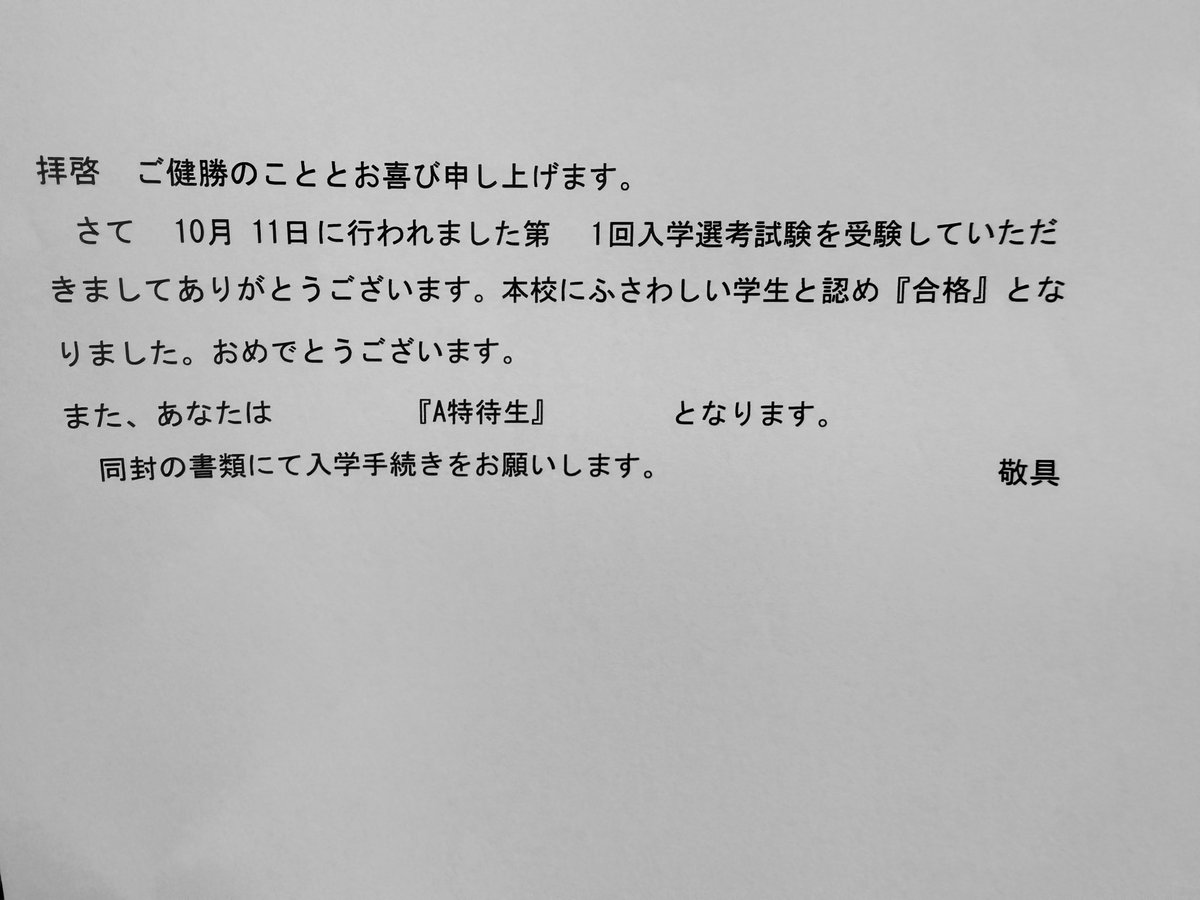 拝啓　ご健勝のこととお喜び申し上げます。
さて　10月 11日に行われました第　1回入学選考試験を受験していただ
きましてありがとうございます。本校にふさわしい学生と認め『合格』とな
りました。おめでとうございます。
また、あなたは　『A特待生』　となります。
同封の書類にて入学手続きをお願いします。　敬具